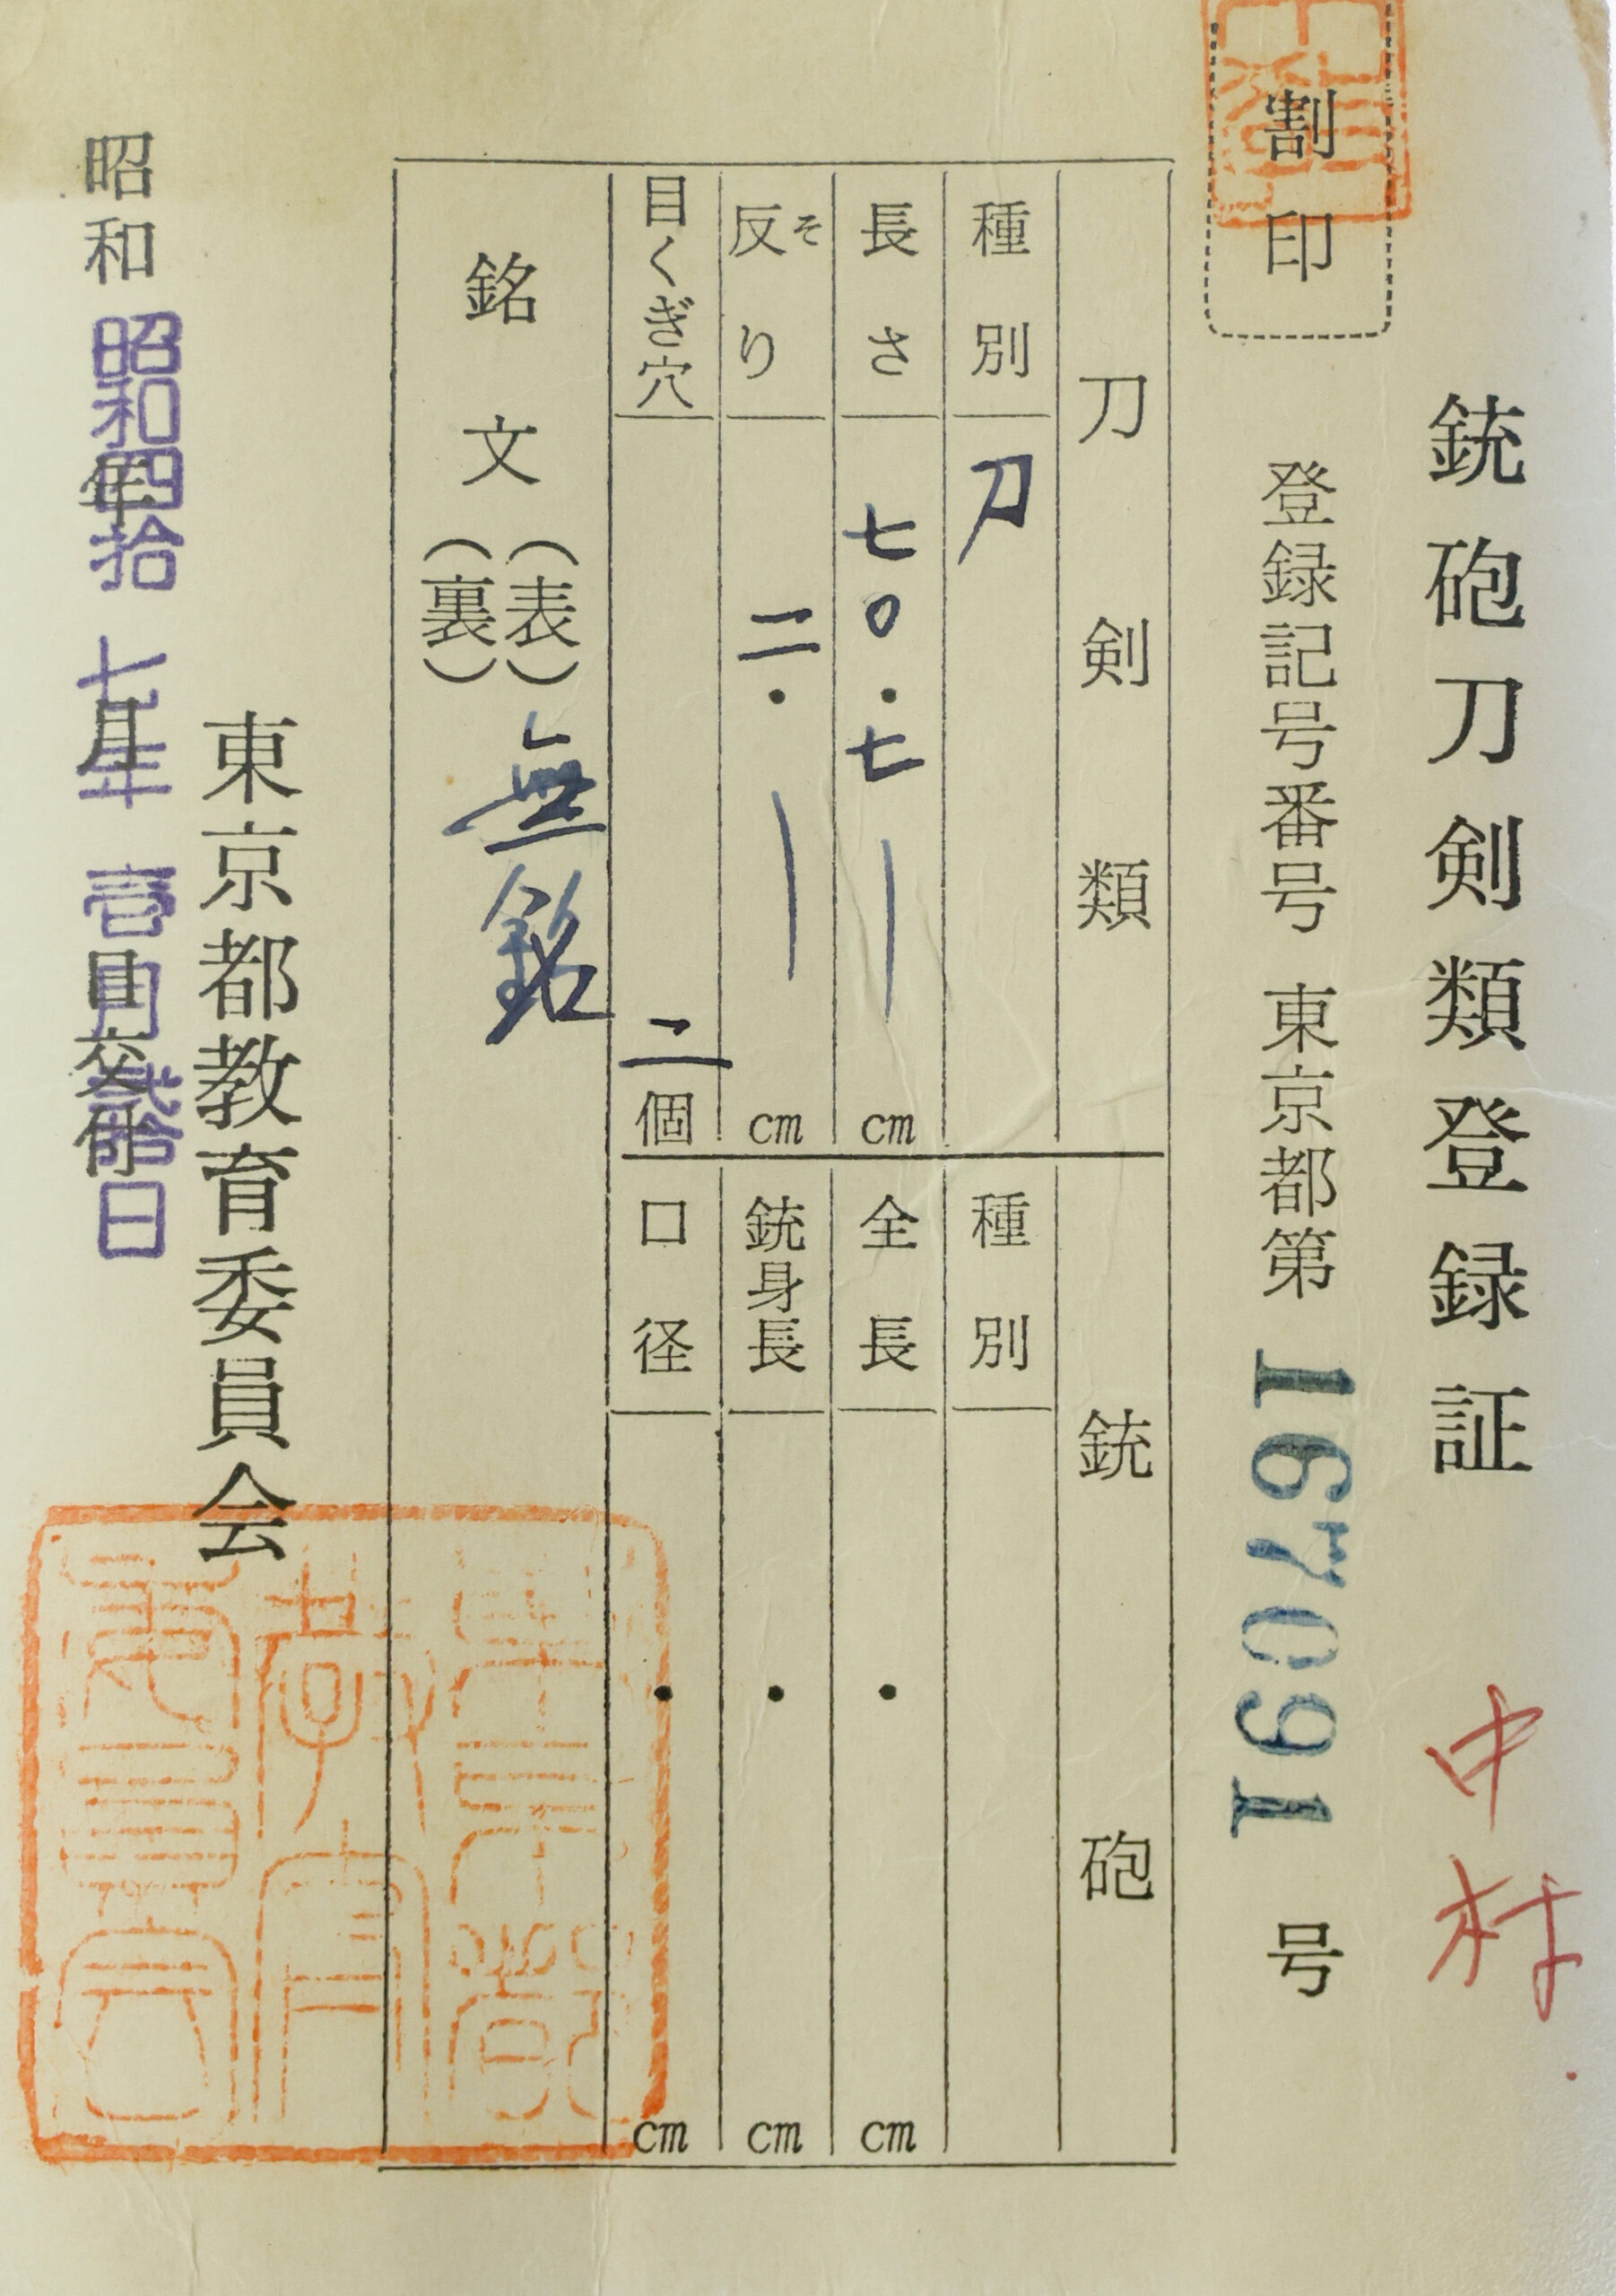 銃砲刀剣類登録証 中村
割印
登録記号番号 東京都第 167091 号
刀剣類
種別 刀
長さ 七〇・七 cm
反り そ 二・ cm
目くぎ穴 二個
銃砲
種別
全長 ・ cm
銃身長 ・ cm
口径 ・ cm
銘文 (表) 無銘
(裏)
東京都教育委員会
昭和 年 月 日交付
昭和四拾七年壱月弐拾日